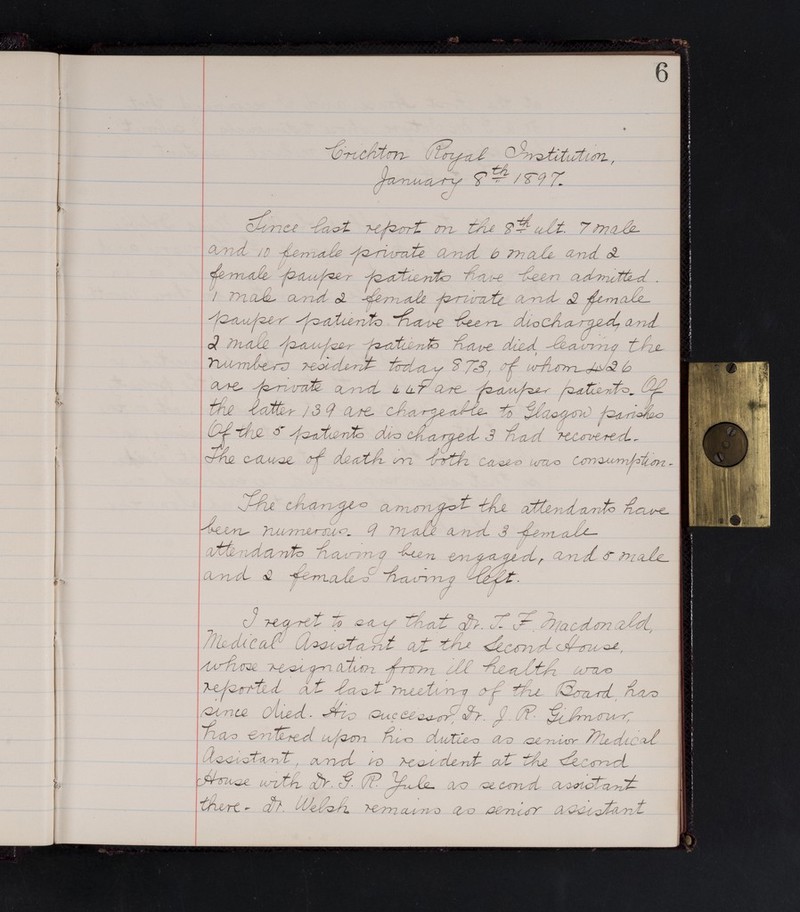 6
Crichton Royal Institution,
January 8th 1897.
Since last report on the 8th ult. 7 male
and 10 female private and 6 male and 2
female pauper patients have been admitted.
1 male and 2 female private and 2 female
pauper patients have been discharged, and
2 male pauper patients have died, leaving the
numbers resident today 873, of whom 426
are private and 447 are pauper patients. Of
the latter 139 are chargeable to Glasgow parishes
Of the 5 patients discharged 3 had recovered.
The cause of death in both cases was consumption.
The changes amongst the attendants have
been numerous. 9 male and 3 female
attendants having been engaged, and 5 male
and 2 females having left.
I regret to say that Dr. T. F. Macdonald,
Medical Assistant at the Second House,
whose resignation from ill health was
reported at last meeting of the Board, has
since died. His successor, Dr. J. R. Gilmour,
has entered upon his duties as senior Medical
Assistant, and is resident at the Second
House with Dr. G. R. Yule as second assistant
there. Dr. Welsh remains as senior assistant